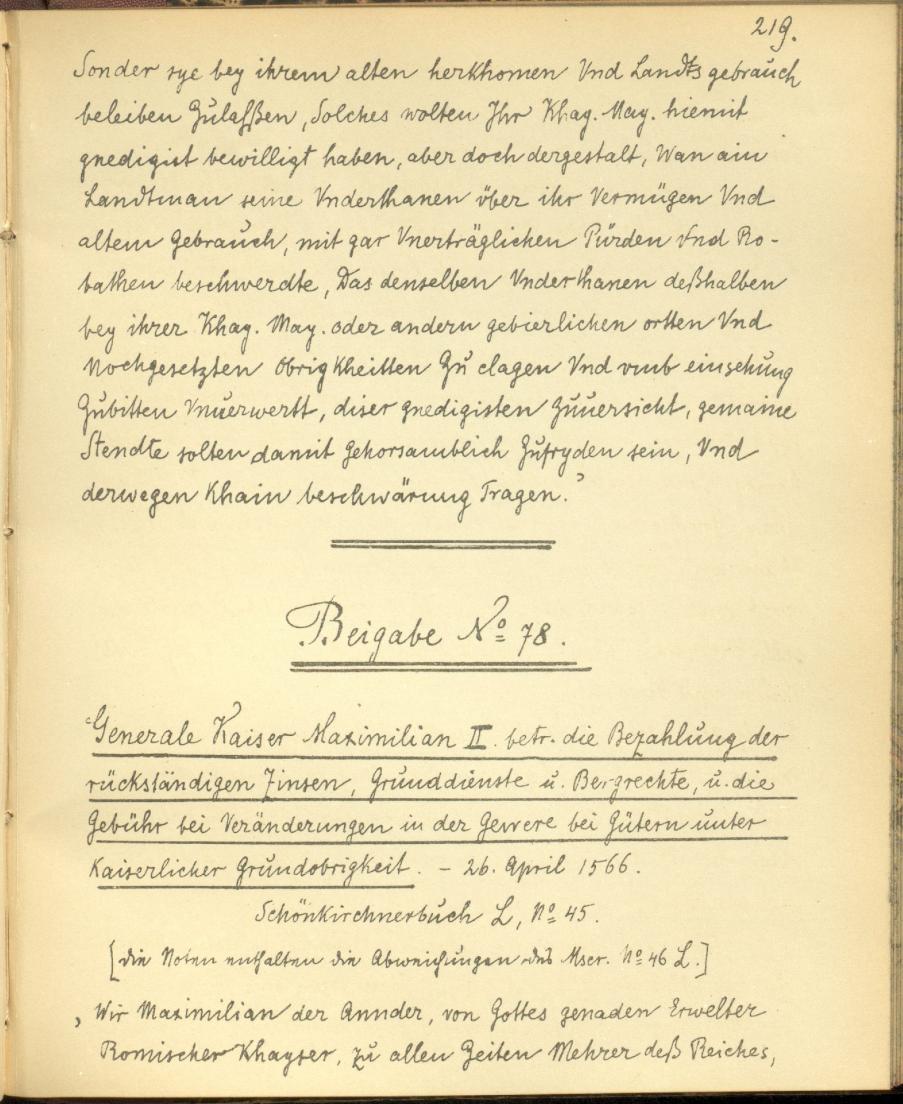 219.
Sonder sye bey ihrem alten herkhomen Vnd Landts gebrauch
beleiben Zulaßen, Solches wolten Ihr Khay. May. hiemit
gnedigist bewilligt haben, aber doch dergestalt, Wan ain
Landtman seine Vnderthanen über ihr Vermügen Vnd
altem Gebrauch, mit gar Vnerträglichen Pürden Vnd Ro-
bathen beschwerdte, Das denselben Vnderthanen deßhalben
bey ihrer Khay. May. oder andern gebierlichen ortten Vnd
Nochgesetzten Obrigkheitten Zu clagen Vnd vmb einsehung
Zubitten Vnuerwertt, diser gnedigisten Zuuersicht, gemaine
Stendte solten damit Gehorsamblich Zufryden sein, Vnd
derwegen Khain beschwärung Tragen.'
Beigabe No 78.
'Generale Kaiser Maximilian II. betr. die Bezahlung der
rückständigen Zinsen, Grunddienste u. Bergrechte, u. die
Gebühr bei Veränderungen in der Gewere bei Gütern unter
Kaiserlicher Grundobrigkeit. - 26. April 1566.
Schönkirchnerbuch L, No 45.
[die Noten enthalten die Abweichungen des Mscr. No 46 L.]
'Wir Maximilian der Annder, von Gottes genaden Erwelter
Romischer Khayser, zu allen Zeiten Mehrer deß Reiches,